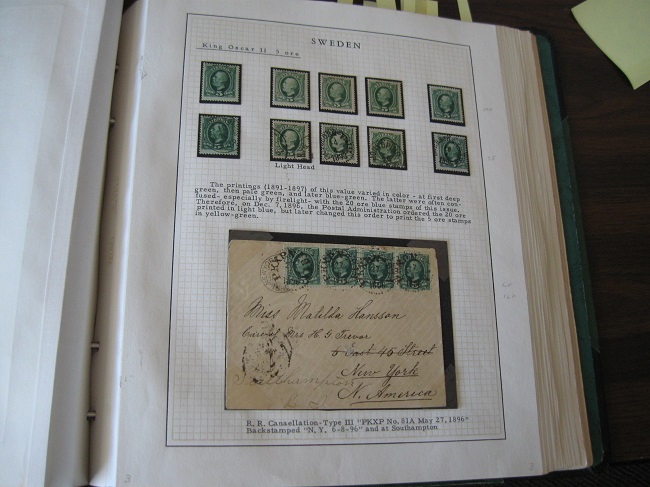 SWEDEN
King Oscar II 5 ore
Light Head
The printings (1891-1897) of this value varied in color - at first deep
green, then pale green, and later blue-green. The latter were often con-
fused- especially by firelight- with the 20 ore blue stamps of this issue.
Therefore, on Dec. 7, 1896, the Postal Administration ordered the 20 ore
printed in light blue, but later changed this order to print the 5 ore stamps
in yellow-green.
PKXP
Miss Matilda Hansson
Care of Mrs H. G. Trevor
5 East 45 Street
New York
N. America
Southampton
R. R. Canaellation-Type III "PKXP No. 81A May 27, 1896"
Backstamped "N.Y. 6-8-96" and at Southampton